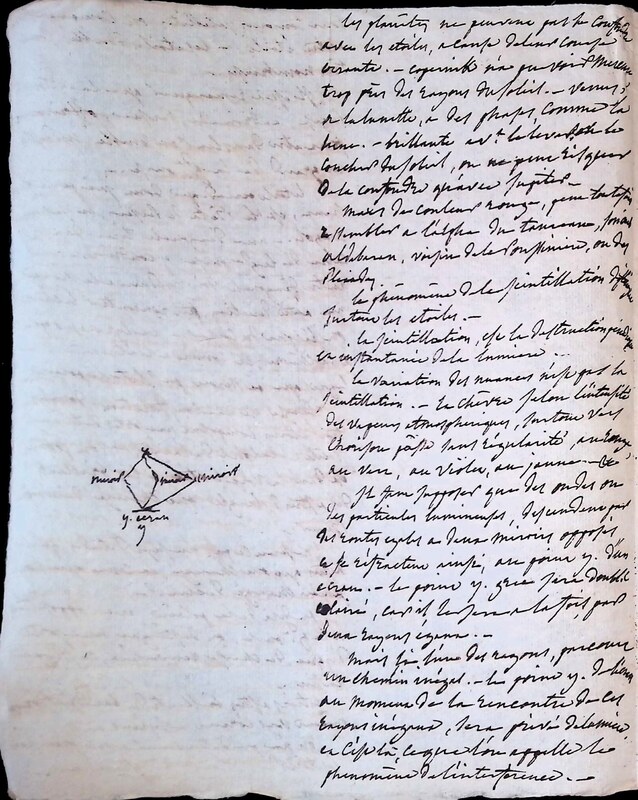 les planètes ne peuvent pas se confondre
avec les etoiles, a cause de leur course
errante. – copernic n'a pu voir Mercure
trop près des rayons du soleil. – venus
de la lunette, a des phases, comme la
lune. – brillante avt le lever et le
coucher du soleil, on ne peut risquer
de la confondre qu'avec jupiter –
mars de couleur rouge, peut toutefois
ressembler a l'alpha du taureau,
aldebaran, voisin de la Poussinière, ou des
Pleiades
le phénomène de la scintillation
surtout les etoiles. –
la scintillation, est la destruction
et instantanée de la lumiere ...
la variation des nuances n'est pas la
scintillation. – la chèvre selon l'intensité
des vapeurs atmospheriques, surtout vers
l'horison passe sans régularité, au rouge,
au vert, au violet, au jaune. –
Il faut supposer que des ondes ou
des particules lumineuses, descendent par
des routes egales a deux miroirs opposés
et se réfractent ainsi, au point y. d'un
écran. – le point y. sera doublé
eclairé, car il le sera a la fois, par
deux rayons égaux. –
miroir miroir miroir
y. ecran
y
Mais si l'un des rayons, parcourt
un chemin inégal. – le point y. de l'écran
au moment de la rencontre de ces
rayons inégaux, sera privé de lumiere
et c'est là, ce que l'on appelle le
phénomène de l'interference. –